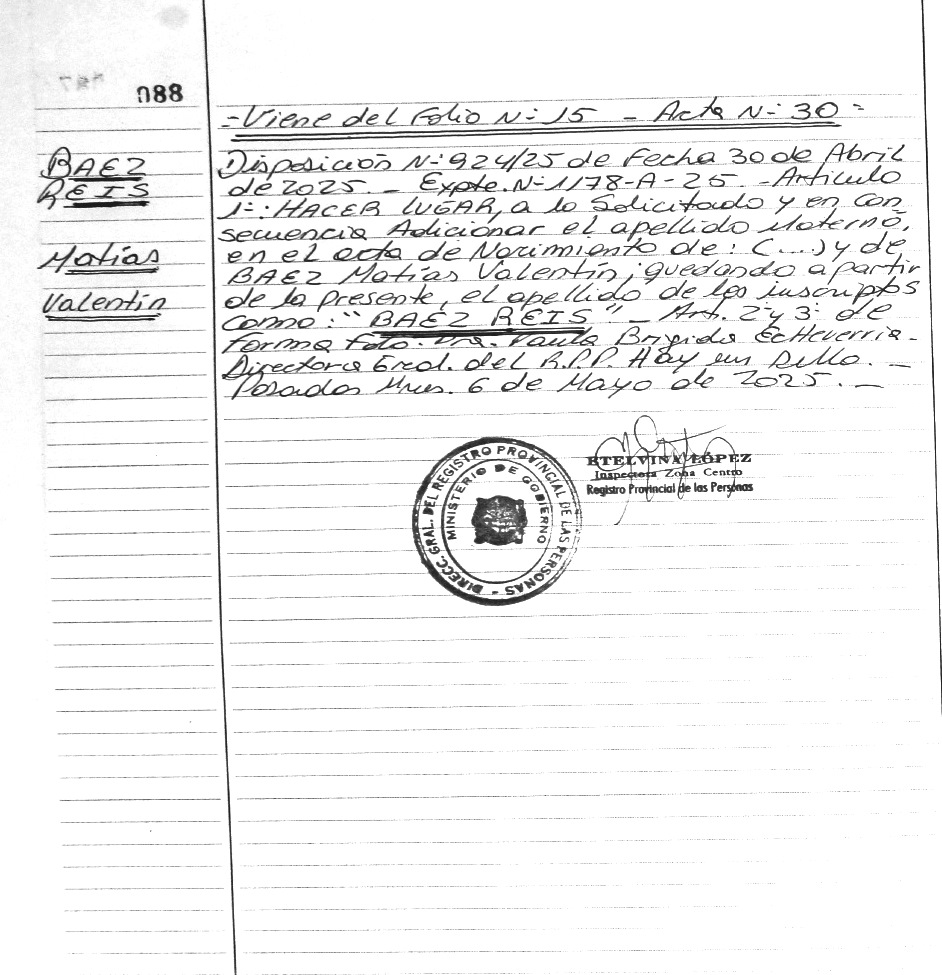 088
-Viene del Folio N-: 15 - Acta N-: 30-
BAEZ
REIS
Matías
Valentín
Disposición N-: 924/25 de Fecha 30 de Abril
de 2025. - Expte. N-: 1178-A-25. - Artículo
1-: HACER LUGAR, a lo Solicitado y en con
secuencia Adicionar el apellido Materno,
en el acta de Nacimiento de: (....) y de
BAEZ Matías Valentín; quedando a partir
de la presente, el apellido de los inscriptos
como: "BAEZ REIS" - Art. 2 y 3: de
forma Fdo. Dra. Paula Brígida Echeverría-
Directora Gral. del R.P.P. Hay un Sello. -
Posadas Mnes. 6 de Mayo de 2025. -
DIRECC. GRAL. DEL REGISTRO PROVINCIAL DE LAS PERSONAS -
MINISTERIO DE GOBIERNO
ETELVINA LÓPEZ
Inspectora Zona Centro
Registro Provincial de las Personas